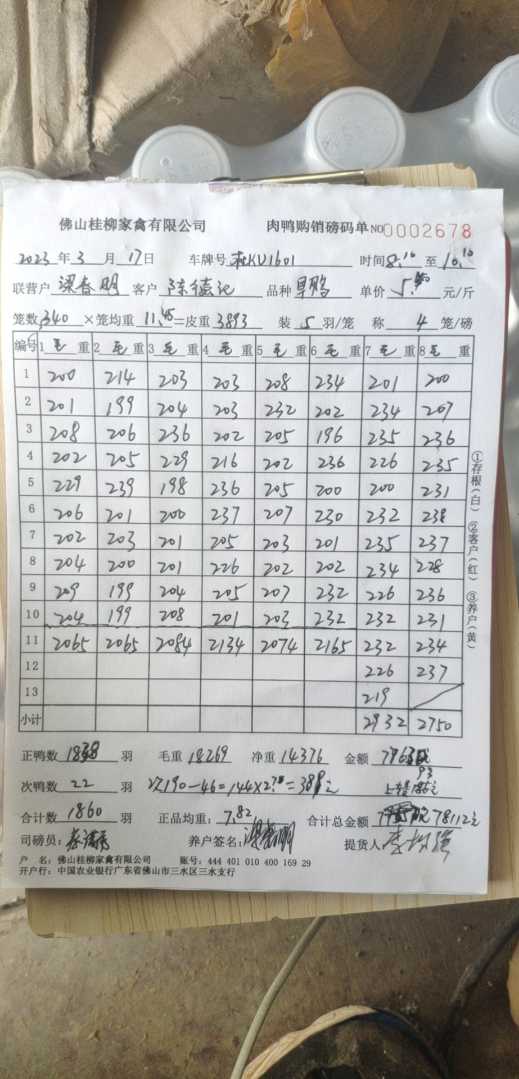 佛山桂柳家禽有限公司 肉鸭购销磅码单 NO 0002678
2023 年 3 月 17 日 车牌号 KU1601 时间 8:10 至 10:10
联营户 梁春明 客户 陈德记 品种 单价 5. 元/斤
笼数 340 ×笼均重 11.45 =皮重 3893 装 5 羽/笼 称 4 笼/磅
编号 1 毛 重 2 毛 重 3 毛 重 4 毛 重 5 毛 重 6 毛 重 7 毛 重 8 毛 重
1 200 214 203 203 208 234 201 200
2 201 199 204 203 232 202 234 207
3 208 206 236 202 205 196 235 236
4 202 205 229 216 202 236 226 235
5 229 239 198 236 205 200 200 231
6 206 201 200 237 207 230 232 238
7 202 203 201 205 203 201 235 237
8 204 200 201 226 202 202 234 228
9 209 199 204 205 207 232 226 236
10 204 199 208 201 203 232 232 231
11 2065 2065 2084 2134 2074 2165 232 234
12 226 237
13 219
小计 2932 2750
①存根(白) ②客户(红) ③养户(黄)
正鸭数 1838 羽 毛重 18269 净重 14376 金额
次鸭数 22 羽 190-46=144×2. =389元
合计数 1860 羽 正品均重: 7.82 合计总金额 78112元
司磅员: 养户签名: 梁春明 提货人
户 名: 佛山桂柳家禽有限公司 账号: 444 401 010 400 169 29
开户行: 中国农业银行广东省佛山市三水区三水支行